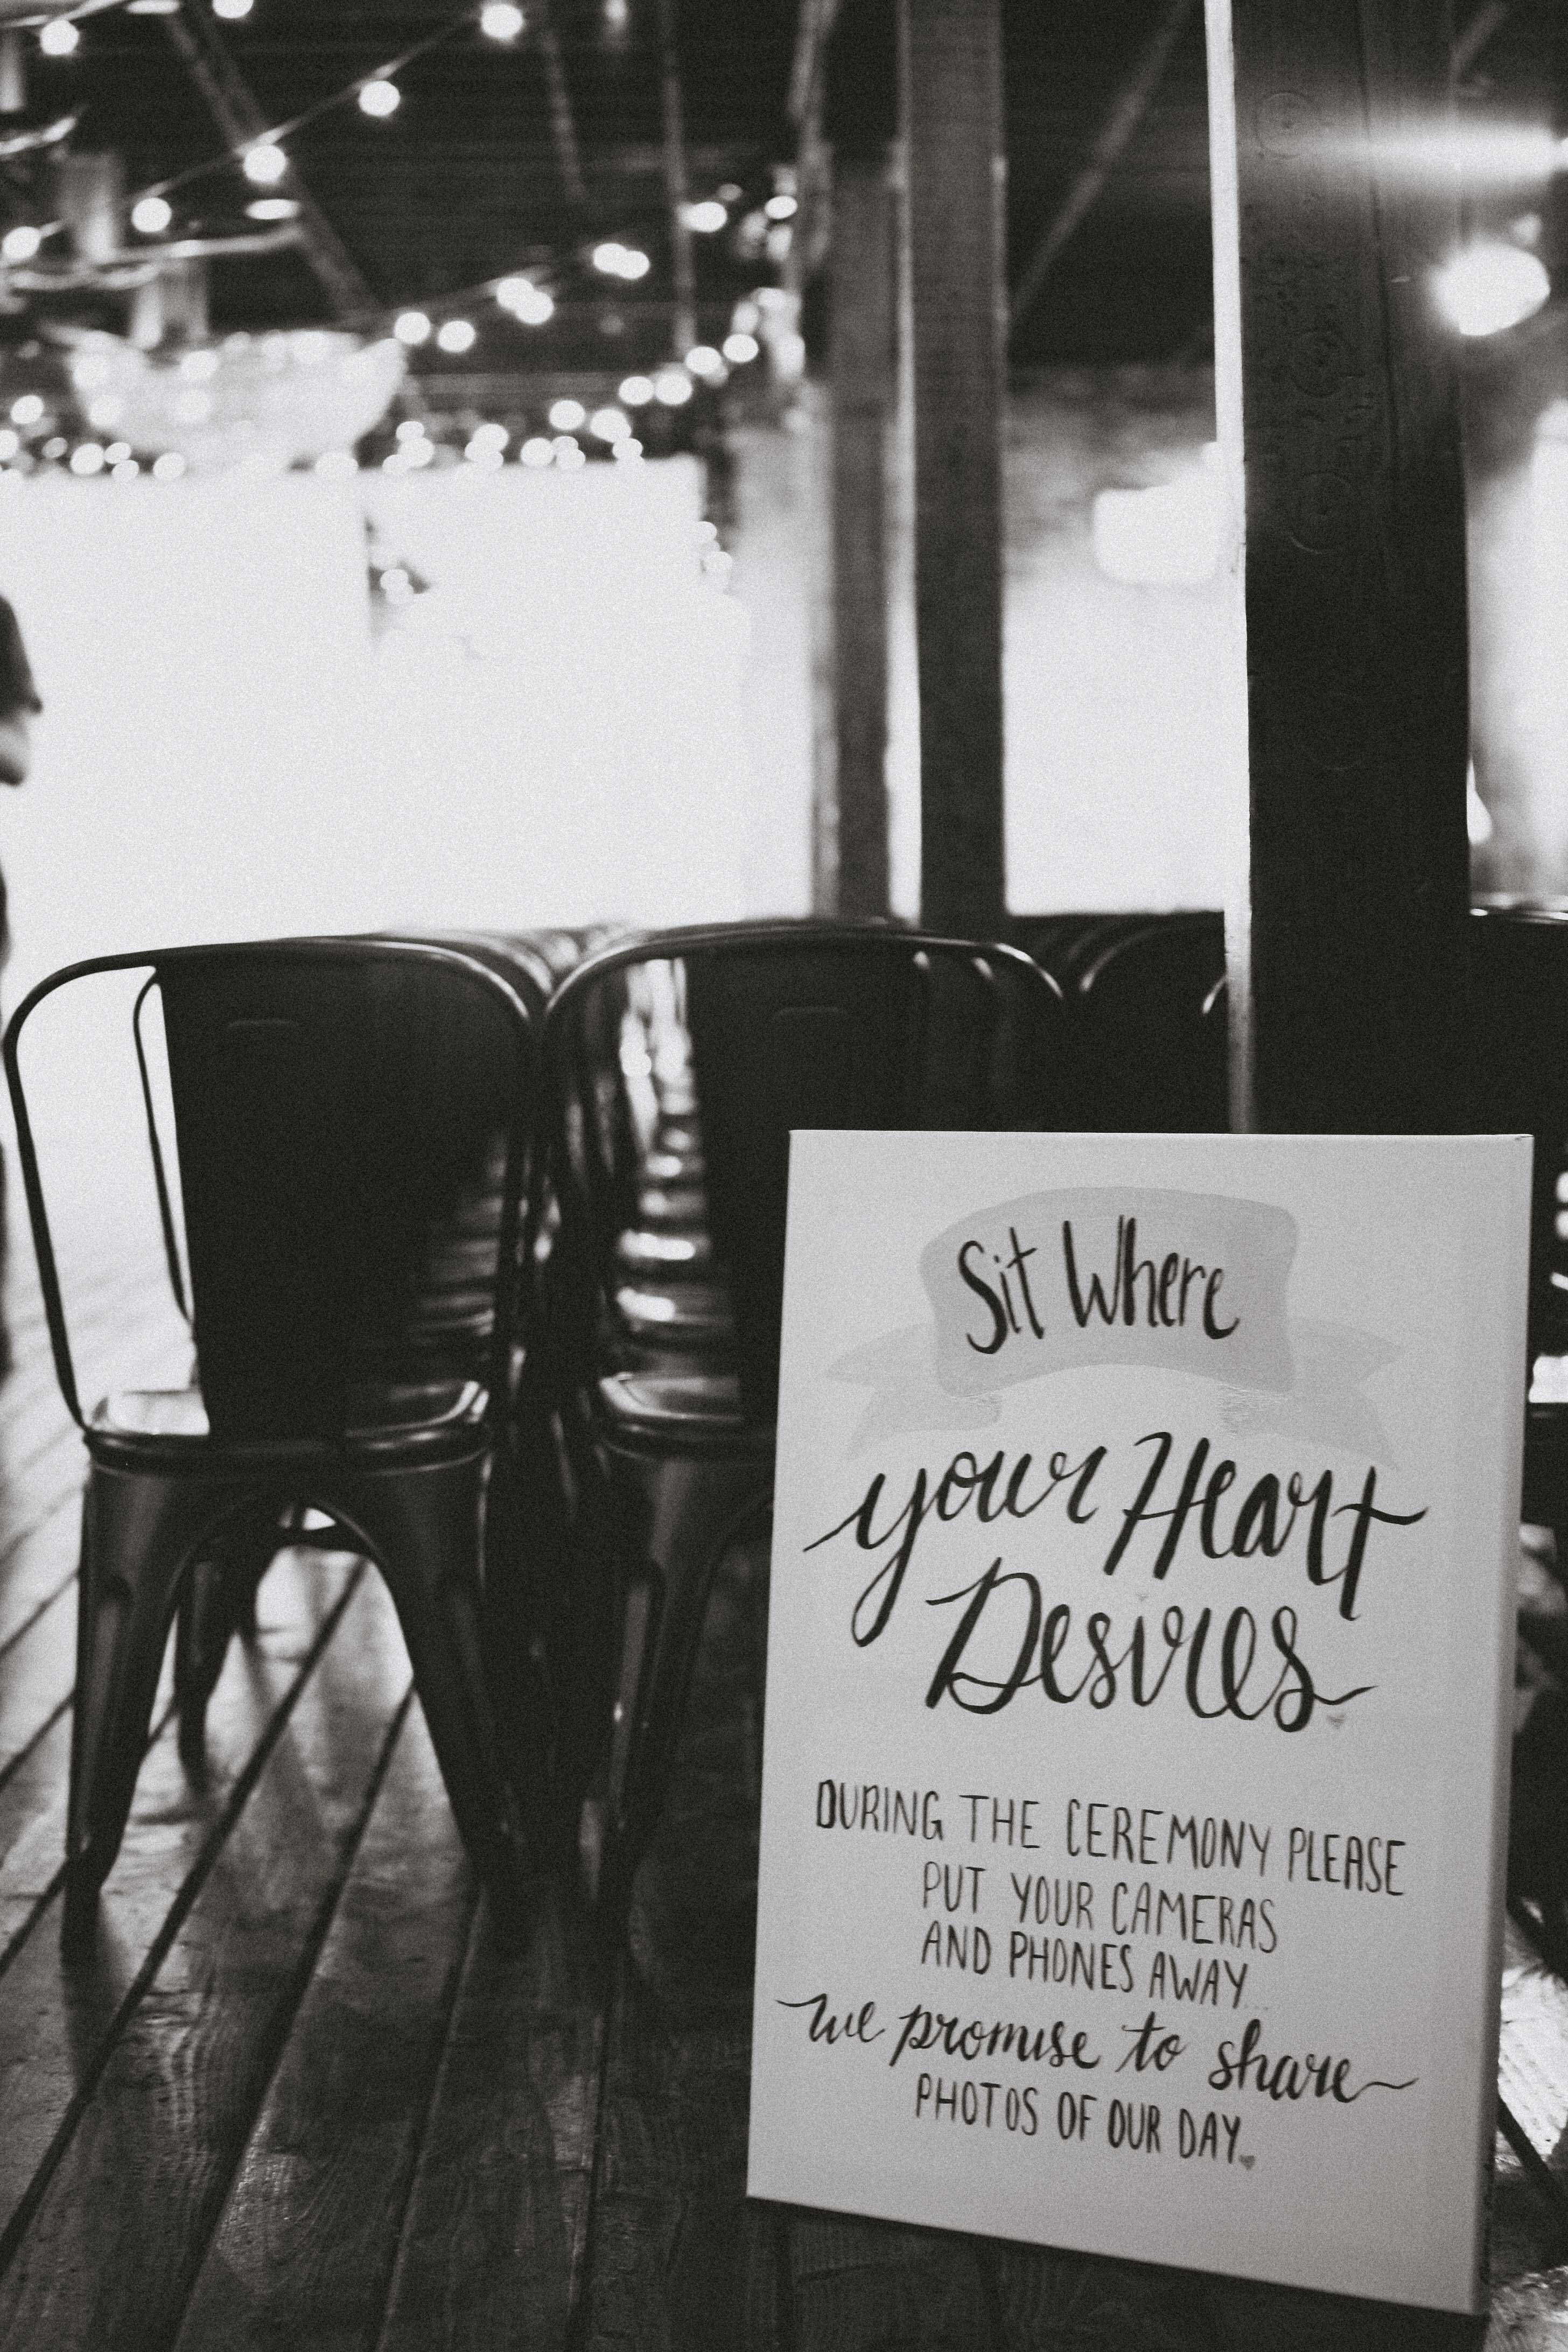 Sit Where
your Heart
Desires
DURING THE CEREMONY PLEASE
PUT YOUR CAMERAS
AND PHONES AWAY...
we promise to share
PHOTOS OF OUR DAY